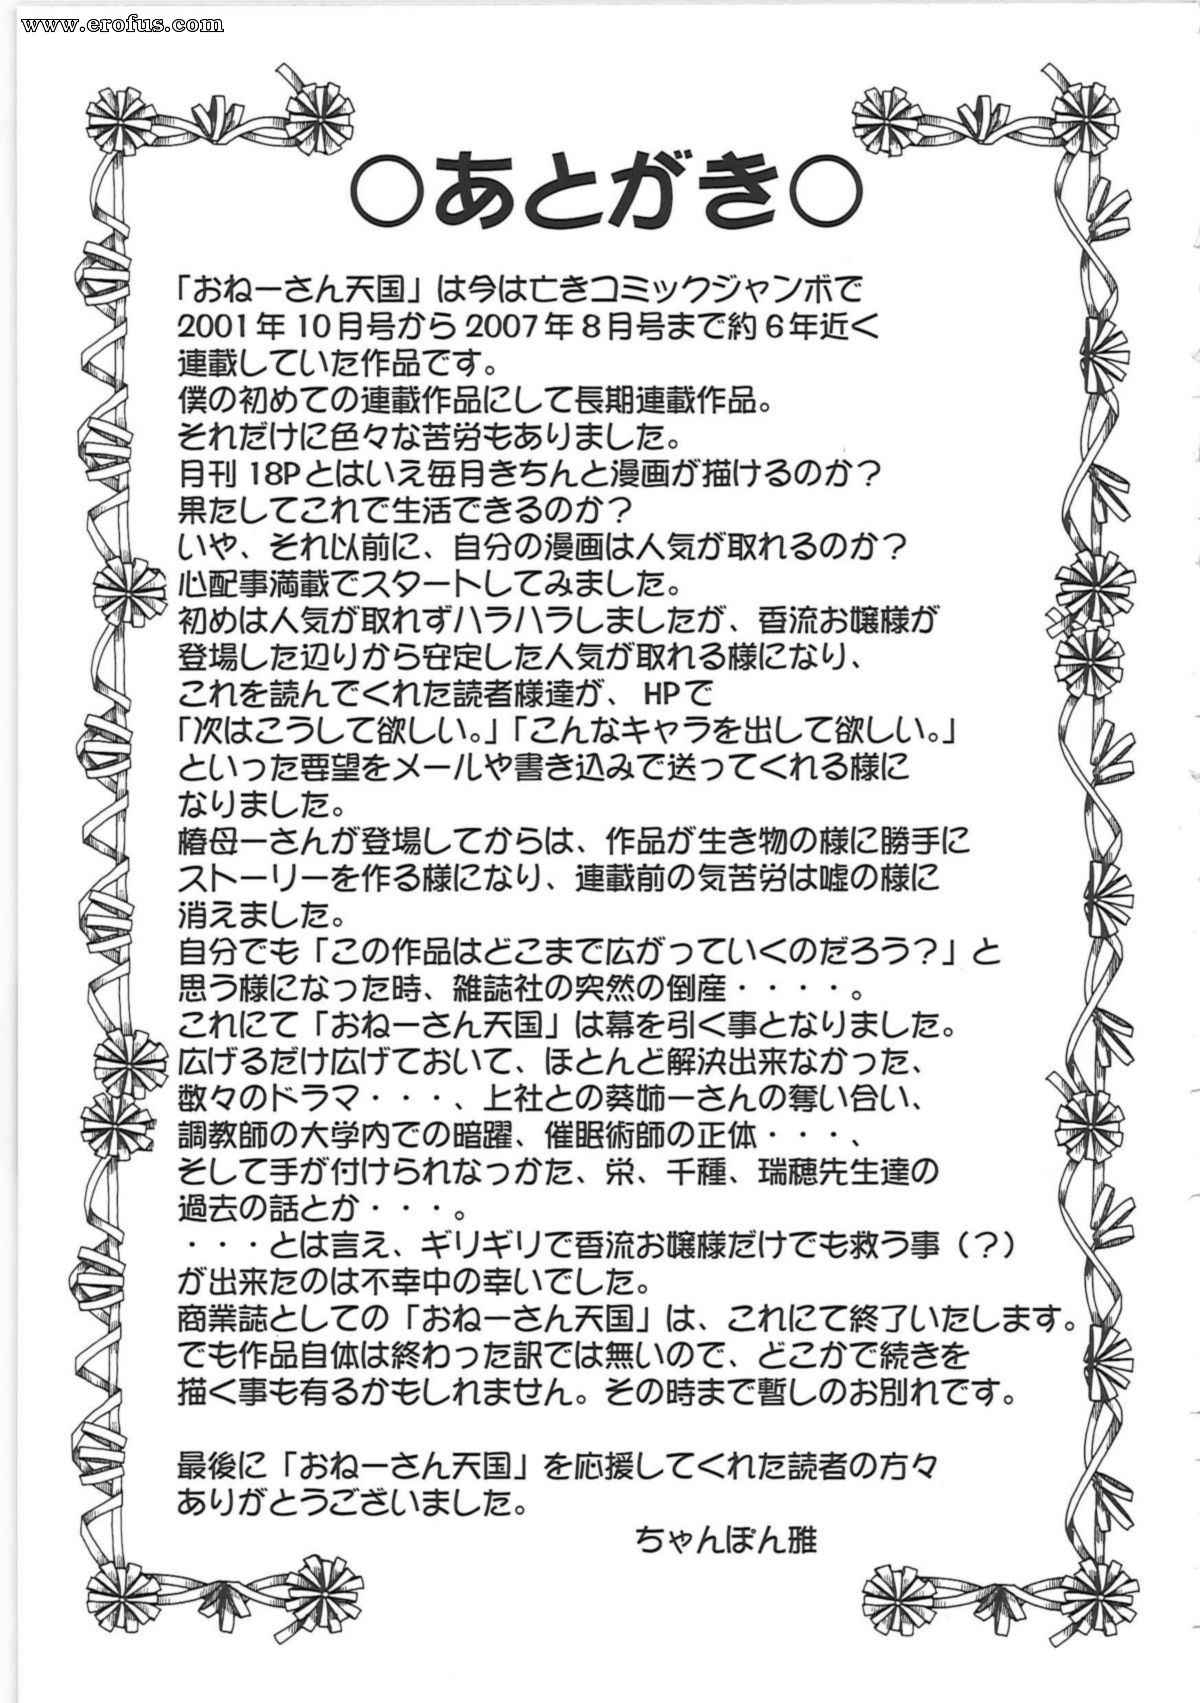 www.erofus.com
○あとがき○
「おねーさん天国」は今は亡きコミックジャンボで
2001年10月号から2007年8月号まで約6年近く
連載していた作品です。
僕の初めての連載作品にして長期連載作品。
それだけに色々な苦労もありました。
月刊18Pとはいえ毎月きちんと漫画が描けるのか？
果たしてこれで生活できるのか？
いや、それ以前に、自分の漫画は人気が取れるのか？
心配事満載でスタートしてみました。
初めは人気が取れずハラハラしましたが、香流お嬢様が
登場した辺りから安定した人気が取れる様になり、
これを読んでくれた読者様達が、HPで
「次はこうして欲しい。」「こんなキャラを出して欲しい。」
といった要望をメールや書き込みで送ってくれる様に
なりました。
椿母ーさんが登場してからは、作品が生き物の様に勝手に
ストーリーを作る様になり、連載前の気苦労は嘘の様に
消えました。
自分でも「この作品はどこまで広がっていくのだろう？」と
思う様になった時、雑誌社の突然の倒産・・・・。
これにて「おねーさん天国」は幕を引く事となりました。
広げるだけ広げておいて、ほとんど解決出来なかった、
数々のドラマ・・・、上社との葵姉ーさんの奪い合い、
調教師の大学内での暗躍、催眠術師の正体・・・、
そして手が付けられなっかた、栄、千種、瑞穂先生達の
過去の話とか・・・。
・・・とは言え、ギリギリで香流お嬢様だけでも救う事（？）
が出来たのは不幸中の幸いでした。
商業誌としての「おねーさん天国」は、これにて終了いたします。
でも作品自体は終わった訳では無いので、どこかで続きを
描く事も有るかもしれません。その時まで暫しのお別れです。
最後に「おねーさん天国」を応援してくれた読者の方々
ありがとうございました。
ちゃんぽん雅